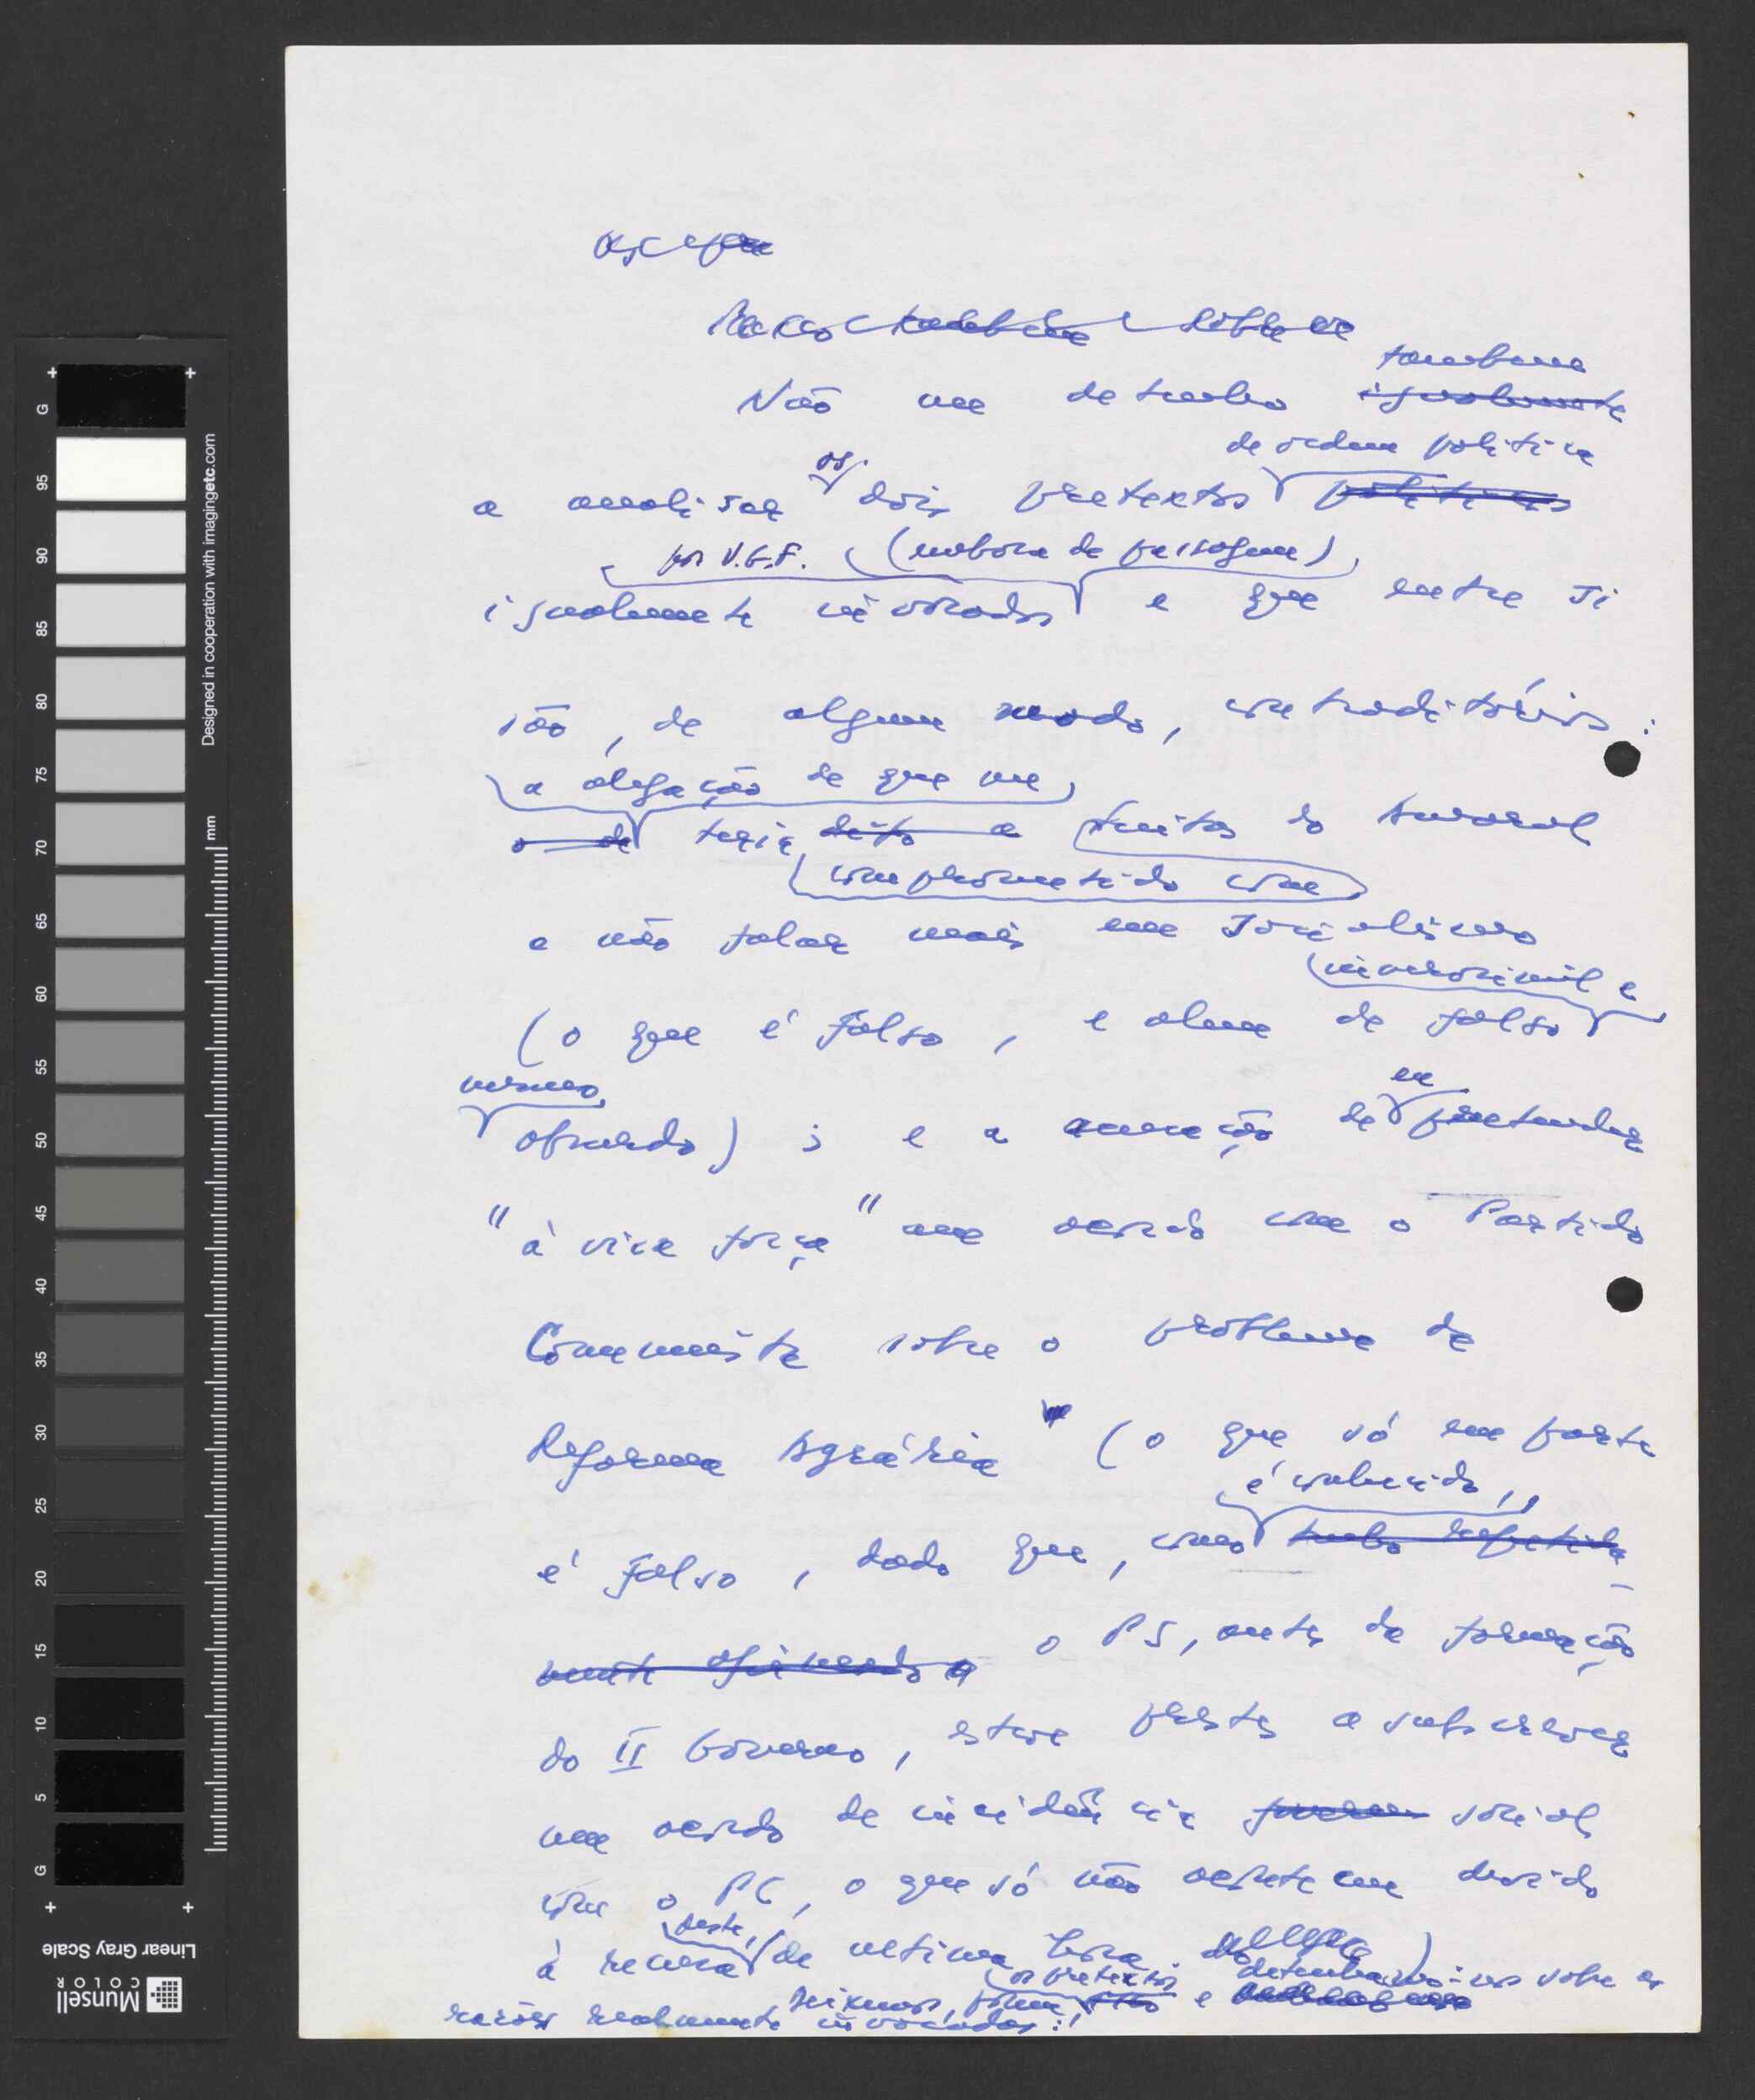 também
Não me detenho igualmente
de ordem política
os
a analisar dois pretextos políticos
por V.G.F. (embora de passagem)
igualmente invocados e que entre si
são, de algum modo, contraditórios:
a alegação de que me
o de teria dito a Freitas do Amaral
comprometido com
a não falar mais em Socialismo
inverosímil e
(o que é falso, e além de falso
mesmo
absurdo); e a acusação de eu pretender
"à viva força" um acordo com o Partido
Comunista sobre o problema da
Reforma Agrária (o que só em parte
é conhecido,
é falso, dado que, como tenho repetida-
mente afirmado o PS, antes da formação
do II Governo, esteve prestes a subscrever
um acordo de incidência social
com o PC, o que só não aconteceu devido
deste,
à recusa de última hora)
os pretextos detenhamo-nos sobre as
Deixemos, porém, e
razões realmente invocadas:
Linear Gray Scale
Munsell
COLOR
Designed in cooperation with imagingetc.com
mm
G
95
90
85
80
75
70
65
60
55
50
45
40
35
30
25
20
15
10
5
G